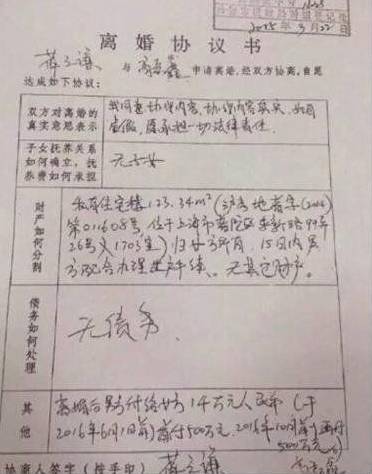 离婚协议书
与 申请离婚,经双方协商,自愿
达成如下协议:
双方对离婚的
真实意思表示
我同意协议内容,协议内容真实,如有
虚假,愿承担一切法律责任.
子女抚养关系
如何确立,抚
养费如何承担
无子女
财产如何分割
私有住宅楼123.34m²(沪房地普字(2006)
第011608号,位于上海市普陀区 新路99弄
26号 1703室)归女方所有,15日内男
方配合办理过户手续。无其它财产。
债务如何处理
无债务
其他
离婚后男方付给女方 万元人民币(于
2016年6月1日前)首付500万元.2016年10月前再付
500万元
协商人签字(按手印)